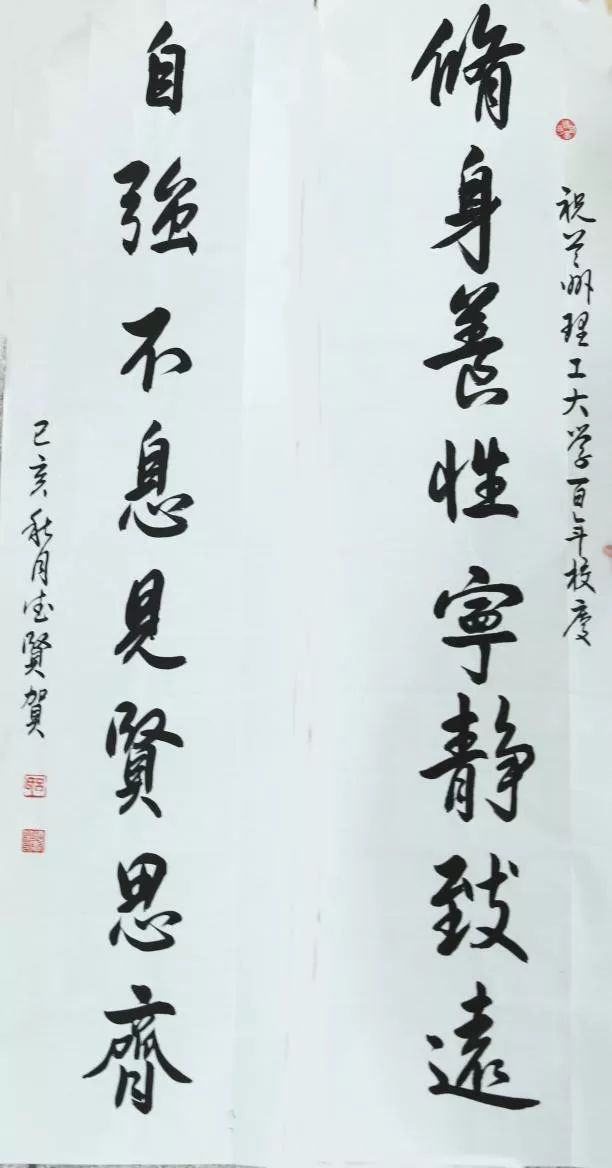 祝兰州理工大学百年校庆
脩身養性寧靜致遠
自強不息見賢思齊
己亥秋月志賢賀